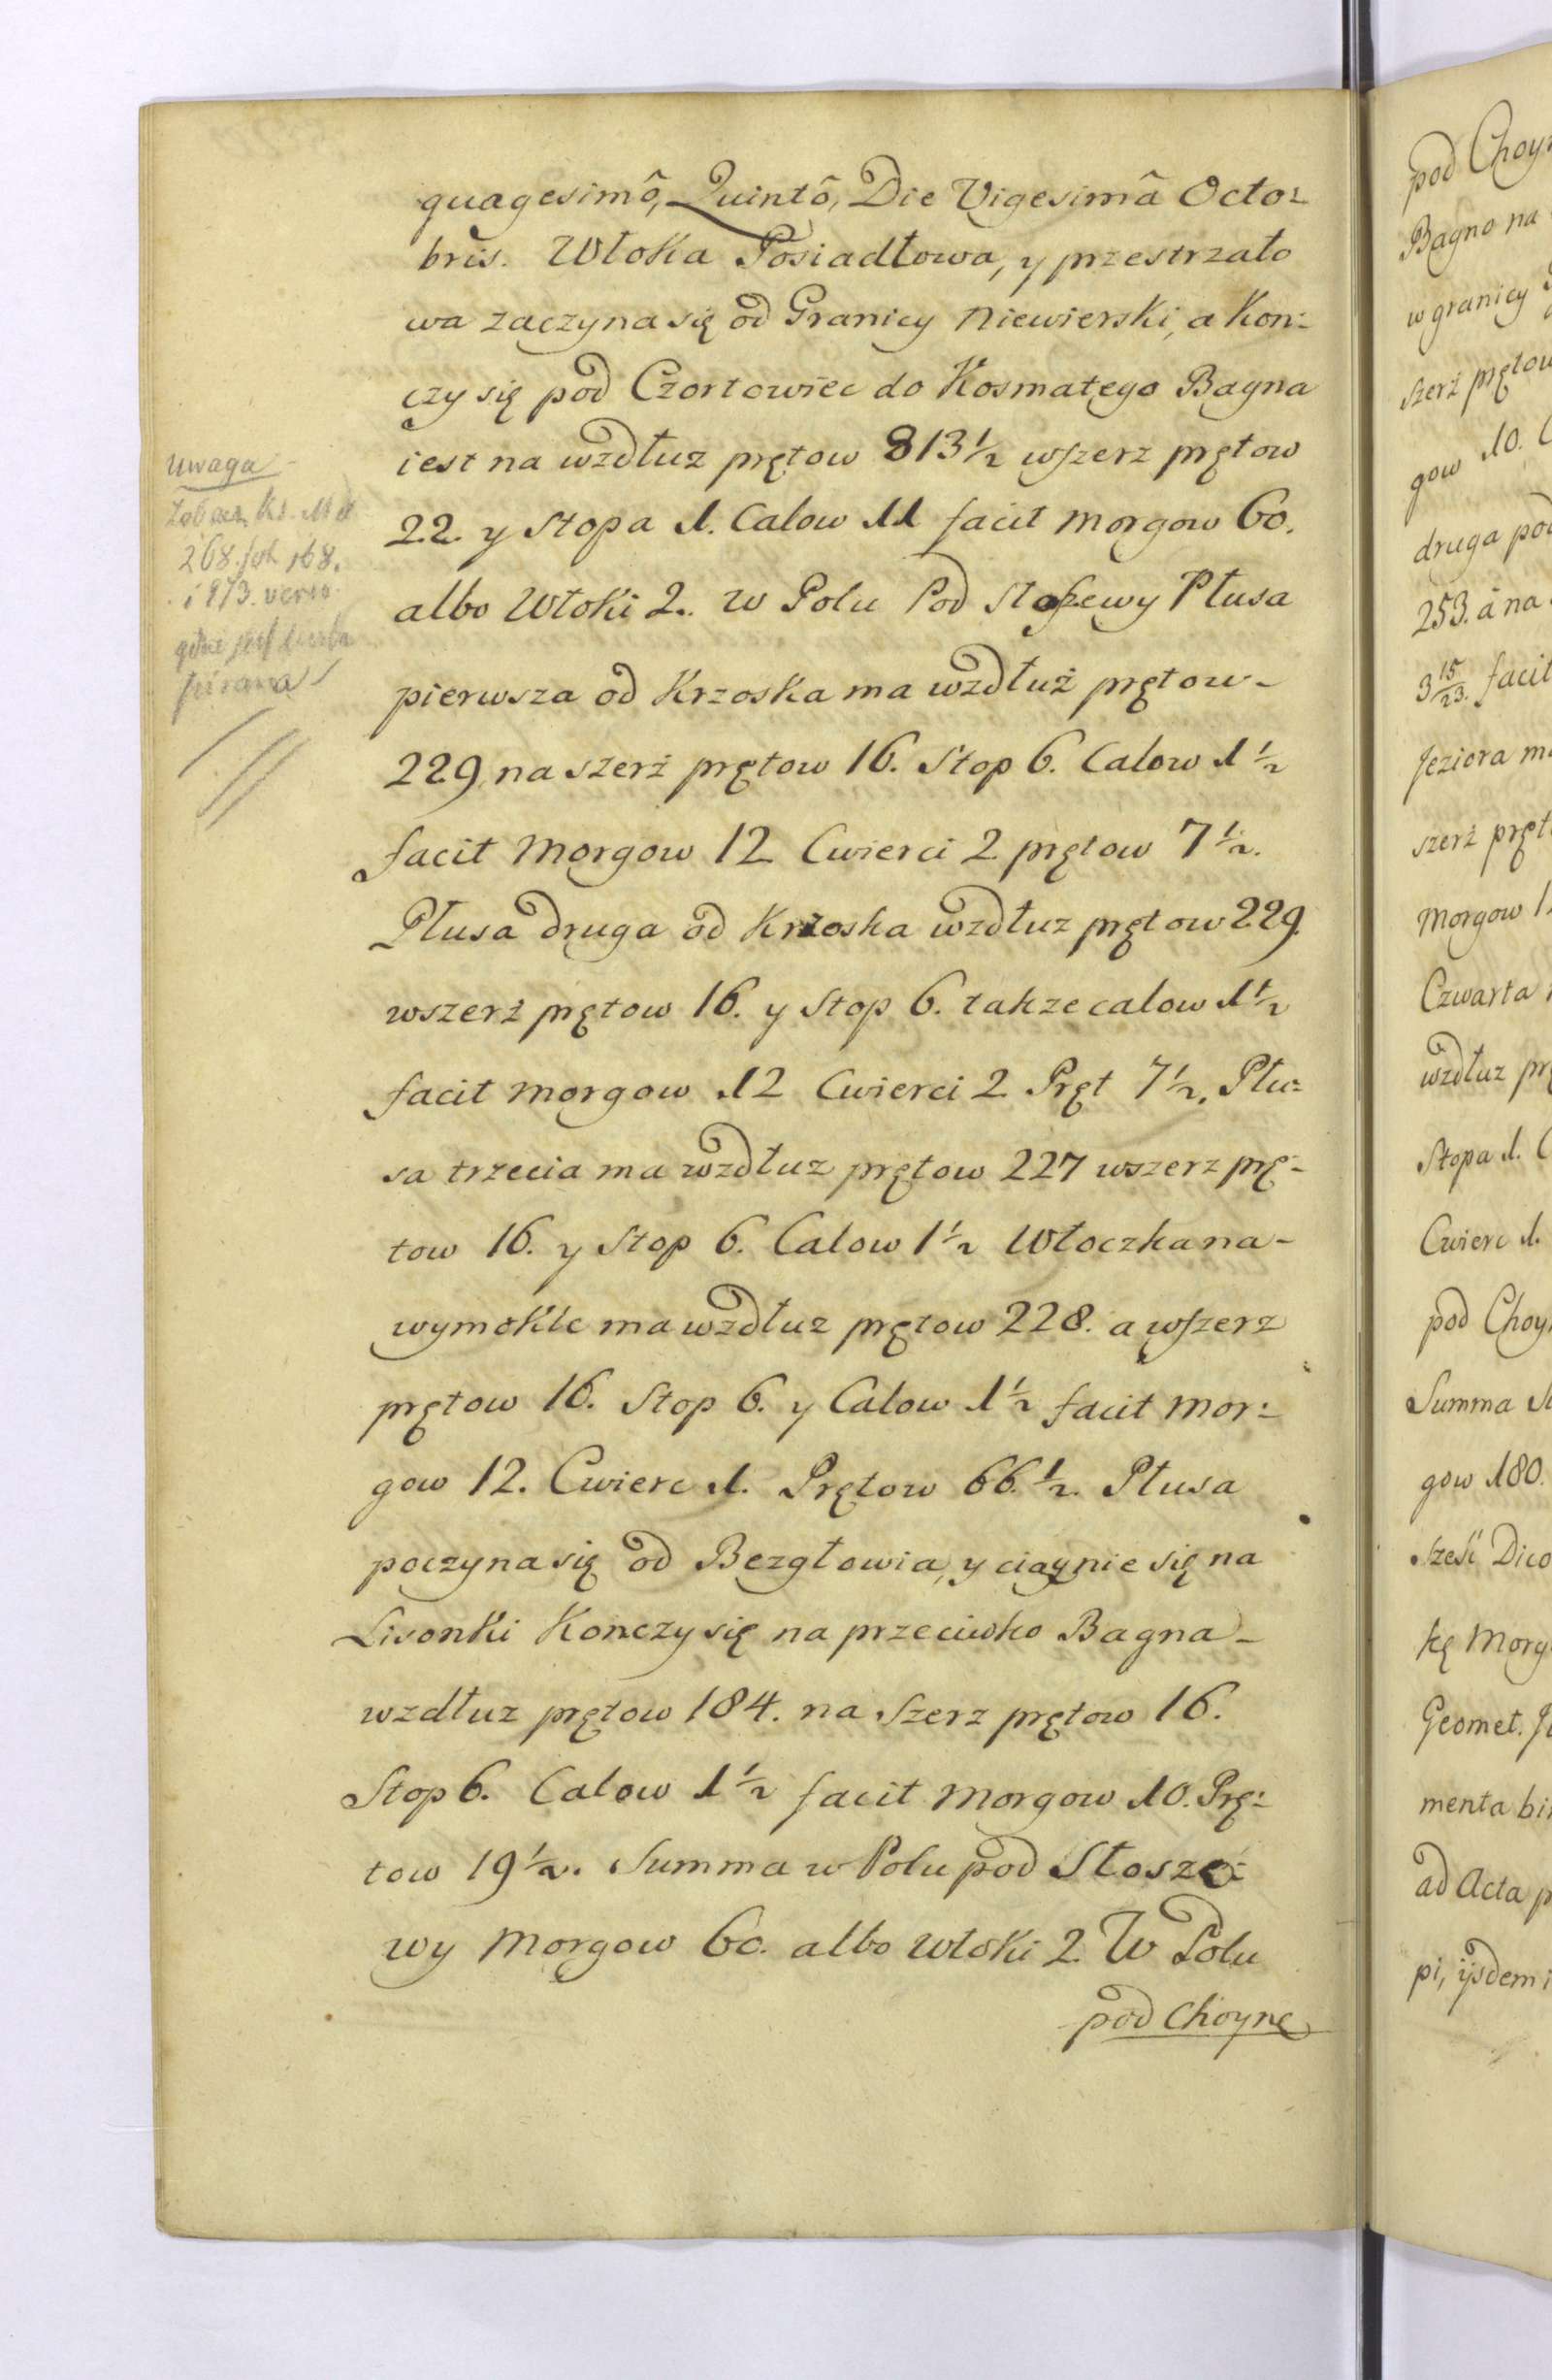 quagesimô, Quintô, Die Vigesimâ Octo=
bris. Włoka Posiadłowa, y przestrzało
wa zaczyna się od Granicy Niewierski, a Kon=
czy się pod Czortowiec do Kosmatego Bagna
iest na wzdłuz prętow 813 1/2 wszerz prętow
22. y Stopa 1. Calow 11 facit morgow 60.
albo Włoki 2. w Polu Pod Stoszewy Płusa
pierwsza od Krzoska ma wzdłuż prętow-
229, na szerż prętow 16. Stop 6. Calow 1 1/2
facit Morgow 12 Cwierci 2 prętow 7 1/2.
Płusa druga od Krzoska wzdłuz prętow 229.
wszerż prętow 16. y Stop 6. takze calow 1 1/2
facit morgow 12 Cwierci 2 Pręt 7 1/2. Płu=
sa trzecia ma wzdłuz prętow 227 wszerz prę=
tow 16. y Stop 6. Calow 1 1/2 Włoczka na-
wymokłe ma wzdłuz prętow 228. a wszerz
prętow 16. Stop 6. y Calow 1 1/2 facit mor=
gow 12. Cwierc 1. Prętow 66. 1/2. Płusa
poczyna się od Bezgłowia, y ciągnie się na
Lisonki Konczy się na przeciwko Bagna-
wzdłuz prętow 184. na Szerz prętow 16.
Stop 6. Calow 1 1/2 facit morgow 10. Prę=
tow 19 1/2. Summa w Polu pod Stosze=
wy morgow 60. albo włoki 2. W Polu
pod Choyne
Uwaga
268. fol. 168.
i 173. verso.
pod Choy
Bagno na
w granicy
szerż prętow
gow 10. C
druga pod
253. â na
3 15/23. facit
Jeziora m
szerż pręt
Morgow 1
Czwarta
wzdłuz pr
Stopa 1. C
Cwierc 1.
pod Choy
Summa
gow 180.
Sześć Dico
kę Morg
Geomet. J
menta bi
ad Acta p
pi, ijsdem i